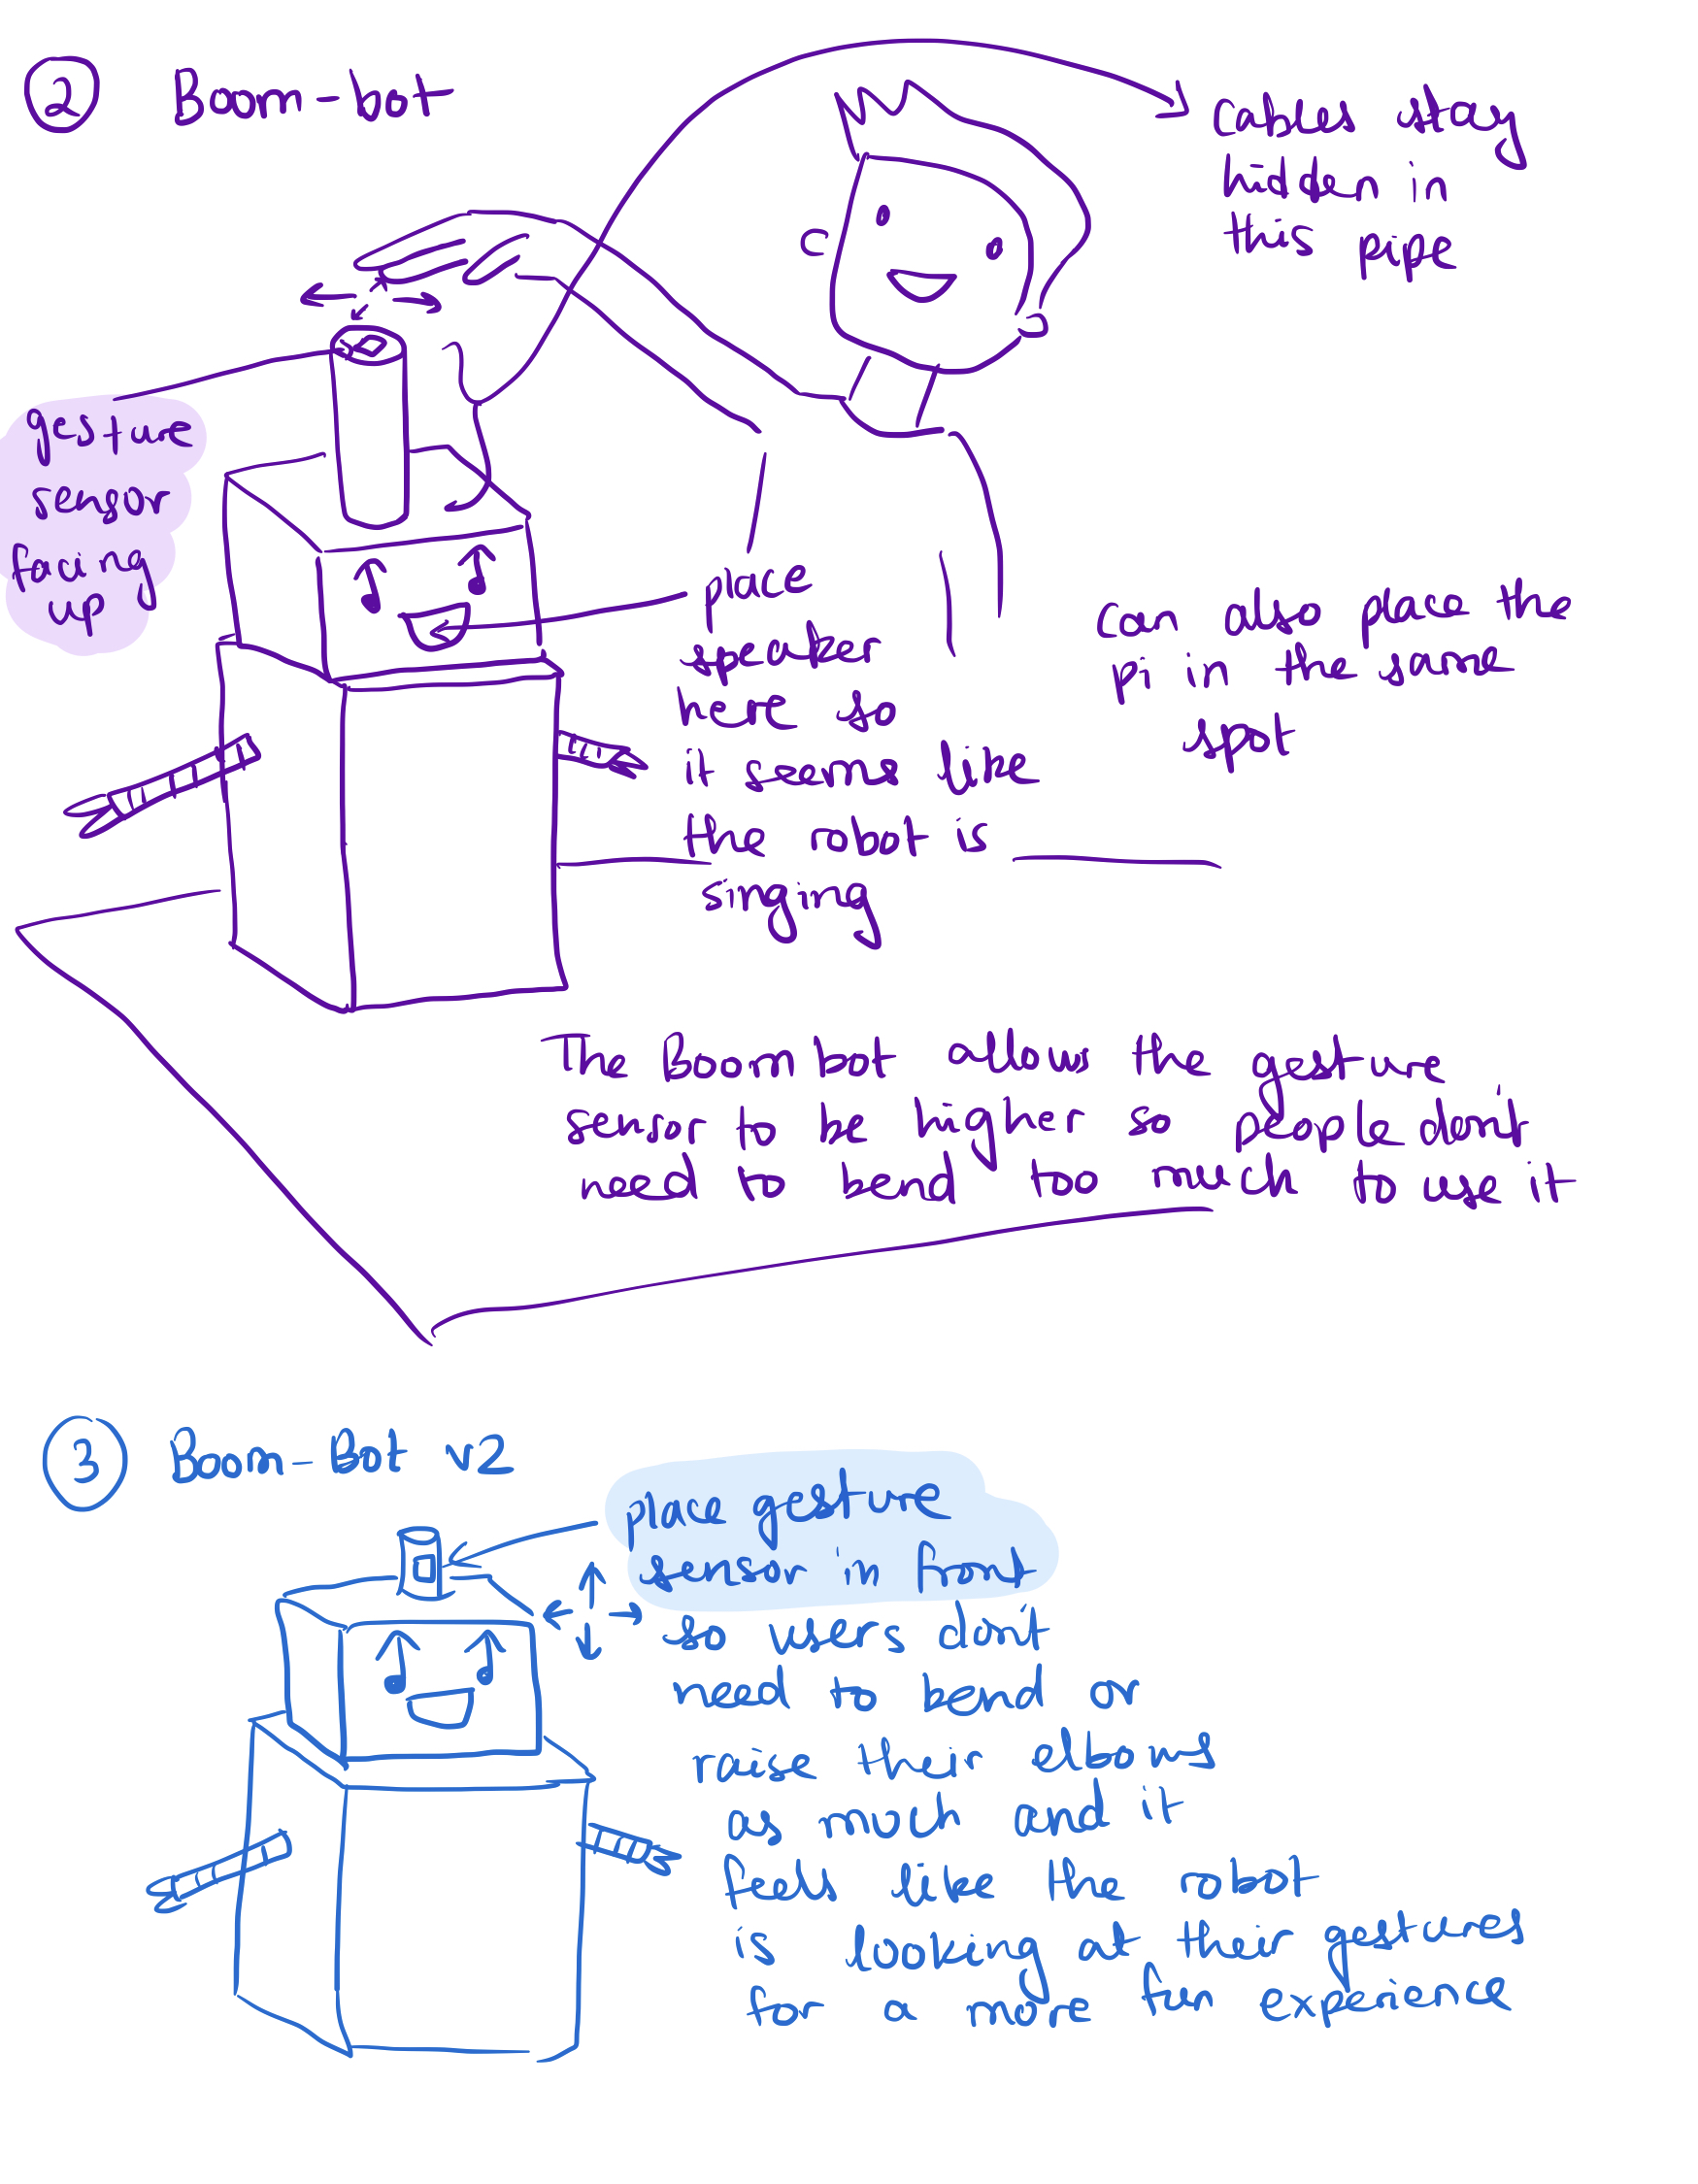 2 Boom-bot
cables stay
hidden in
this pipe
gesture
sensor
facing
up
place
speaker
here so
it seems like
the robot is
singing
can also place the
pi in the same
spot
The Boombot allows the gesture
sensor to be higher so people don't
need to bend too much to use it
3 Boom-Bot v2
place gesture
sensor in front
so users don't
need to bend or
raise their elbows
as much and it
feels like the robot
is looking at their gestures
for a more fun experience